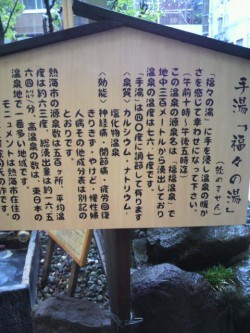 手湯「福々の湯」
(飲めません)
「福々の湯」に手を浸し温泉の暖か
さを感じて幸せになって下さい
(午前十時～午後五時迄)
この温泉の源泉名は「福福温泉」で
地中三百メートルから湧出しており
温泉の温度は七六、七度です。
「手湯」は四〇度に調節して有ります
〈泉質〉カルシウム・ナトリウム
塩化物温泉
〈効能〉神経痛、関節痛、疲労回復
きりきず、やけど、慢性婦
人病その他成分表は別記の
とおりです。
熱海市の源泉数は五
ヶ所、平均温
度は約六三度、総湧出量は約一六五
六四㍑/分、高温泉の数は、東日本の
温泉地で一番多い地域です。
モニュメントは熱海市在住の
の作です。